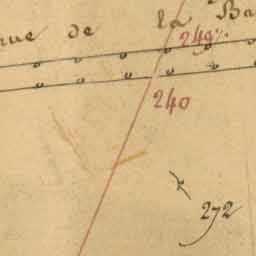 nue de la Ba
249
240
272